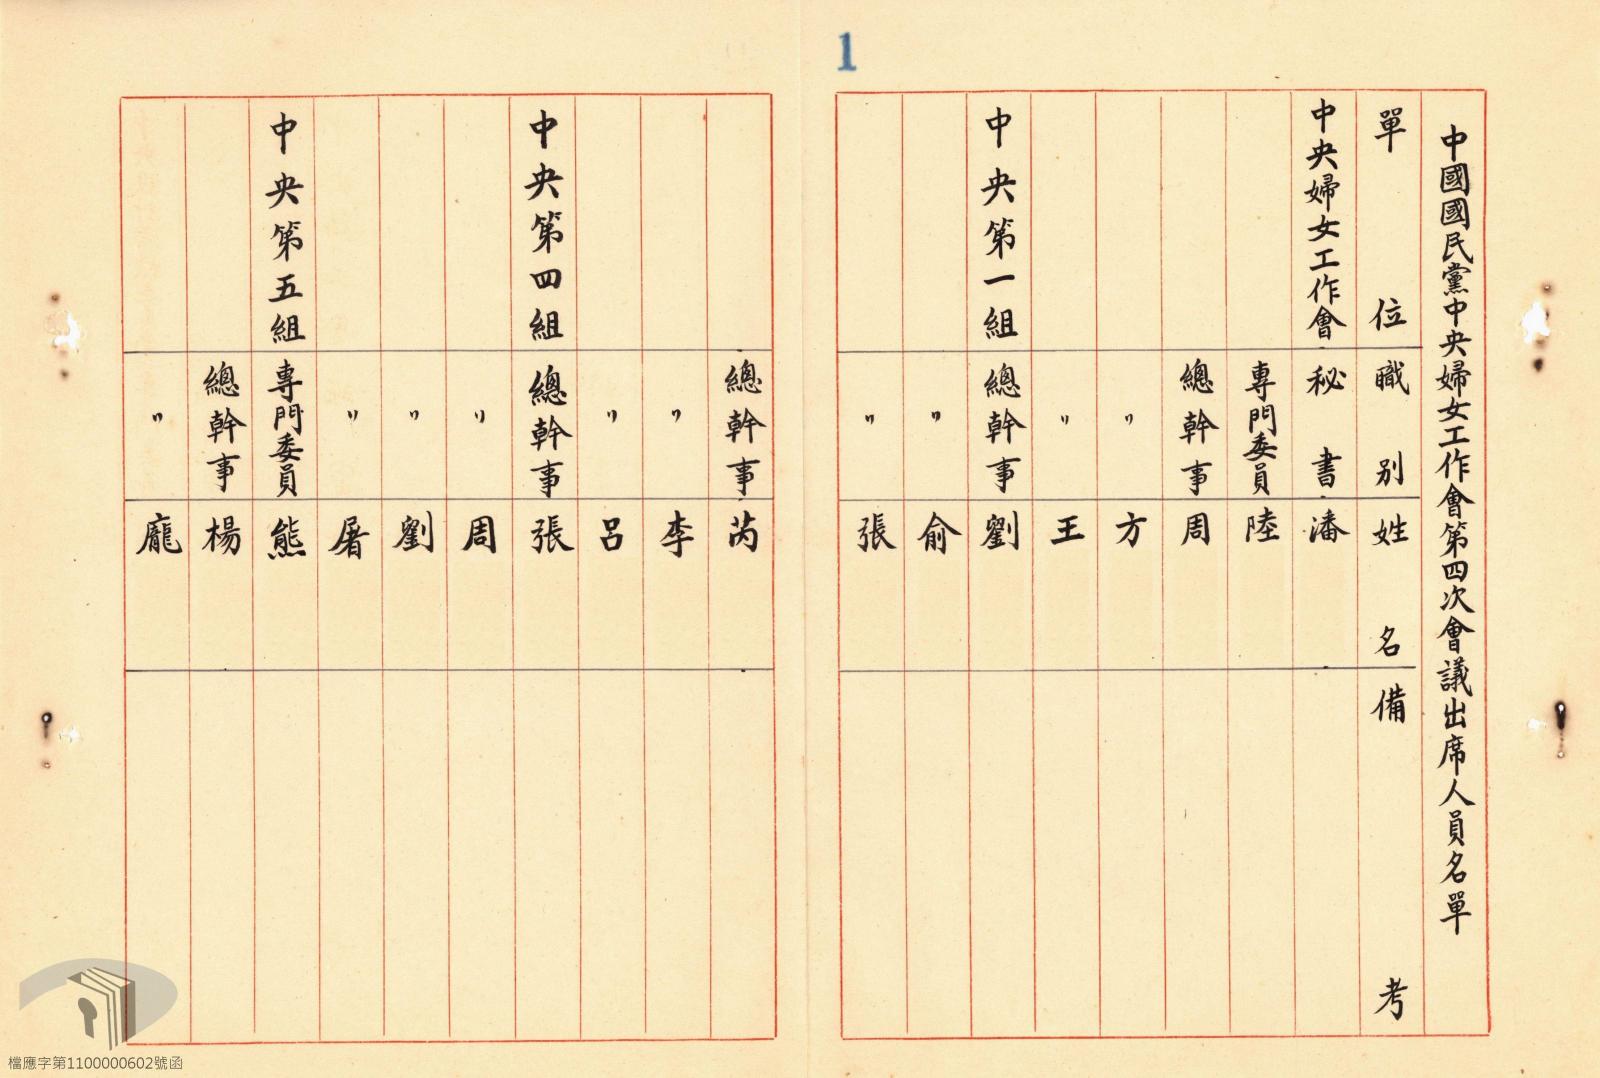 1
中國國民黨中央婦女工作會第四次會議出席人員名單
單位 職別 姓名 備考
中央婦女工作會 秘書 潘
專門委員 陸
總幹事 周
〃 方
〃 王
中央第一組 總幹事 劉
〃 俞
〃 張
總幹事 芮
〃 李
〃 呂
中央第四組 總幹事 張
〃 周
〃 劉
〃 屠
中央第五組 專門委員 熊
總幹事 楊
〃 龐
檔應字第1100000602號函